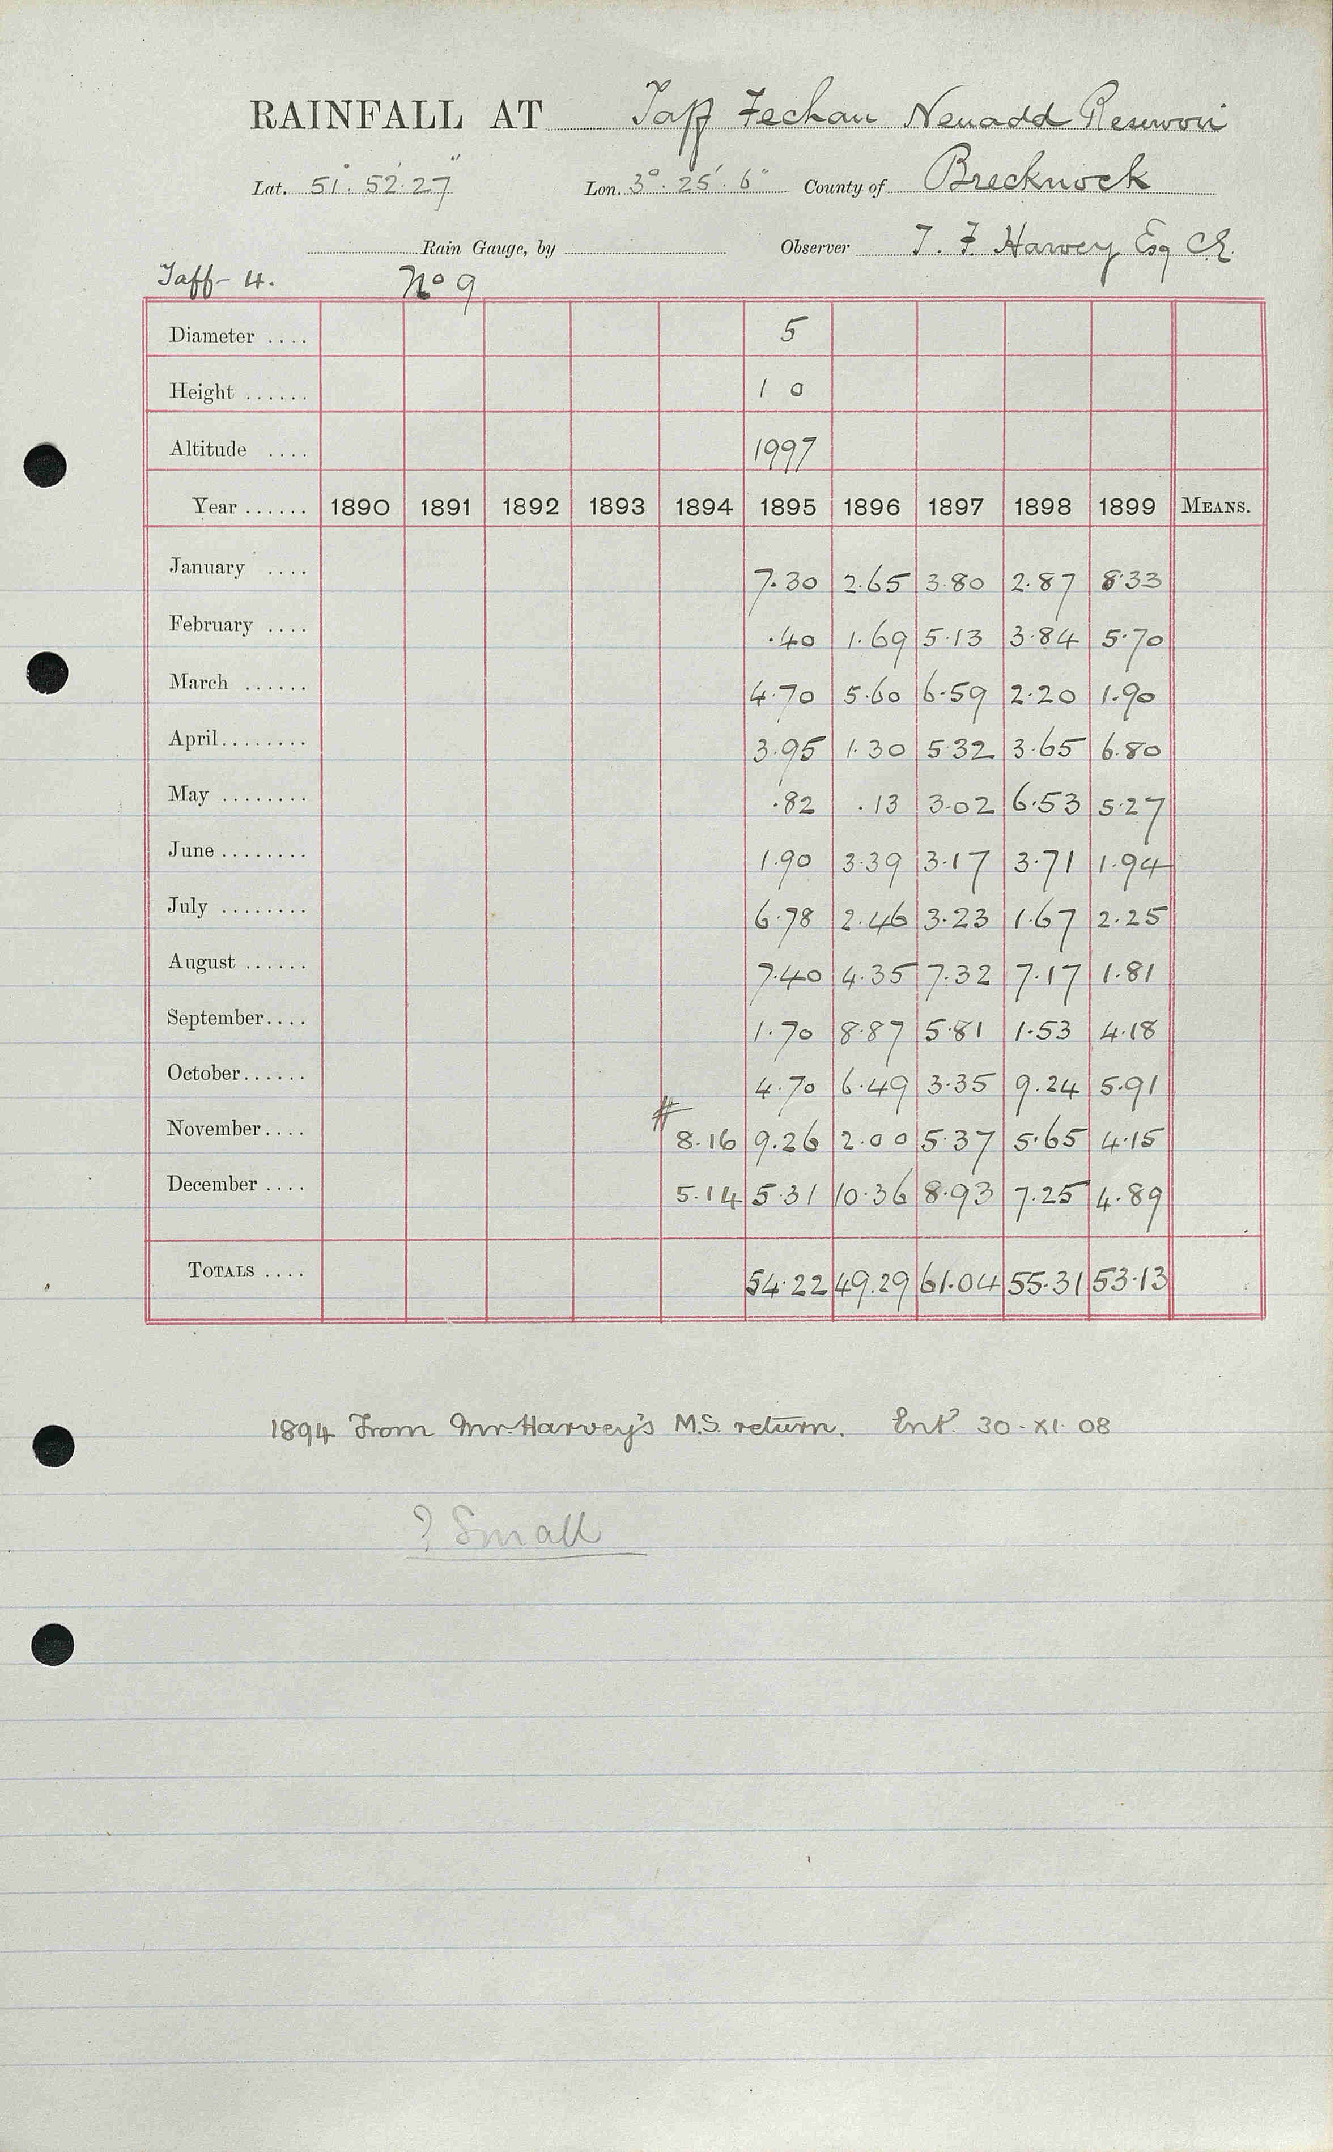 RAINFALL AT Taff Fechan Neuadd Reservoir
Lat. 51°. 52'. 27" Lon. 3°. 25'. 6" County of Brecknock
Rain Gauge, by Observer T. F. Harvey Esq C.E.
Taff- 4. No 9
Diameter .... 5
Height ...... 1 0
Altitude .... 1997
Year ...... 1890 1891 1892 1893 1894 1895 1896 1897 1898 1899 MEANS.
January .... 7.30 2.65 3.80 2.87 8.33
February .... .40 1.69 5.13 3.84 5.70
March ...... 4.70 5.60 6.59 2.20 1.90
April........ 3.95 1.30 5.32 3.65 6.80
May ........ .82 .13 3.02 6.53 5.27
June ........ 1.90 3.39 3.17 3.71 1.94
July ........ 6.78 2.46 3.23 1.67 2.25
August ...... 7.40 4.35 7.32 7.17 1.81
September.... 1.70 8.87 5.81 1.53 4.18
October...... 4.70 6.49 3.35 9.24 5.91
November.... # 8.16 9.26 2.00 5.37 5.65 4.15
December .... 5.14 5.31 10.36 8.93 7.25 4.89
TOTALS .... 54.22 49.29 61.04 55.31 53.13
1894 From Mr. Harvey's M.S. return. Entd. 30-XI-08
? Small